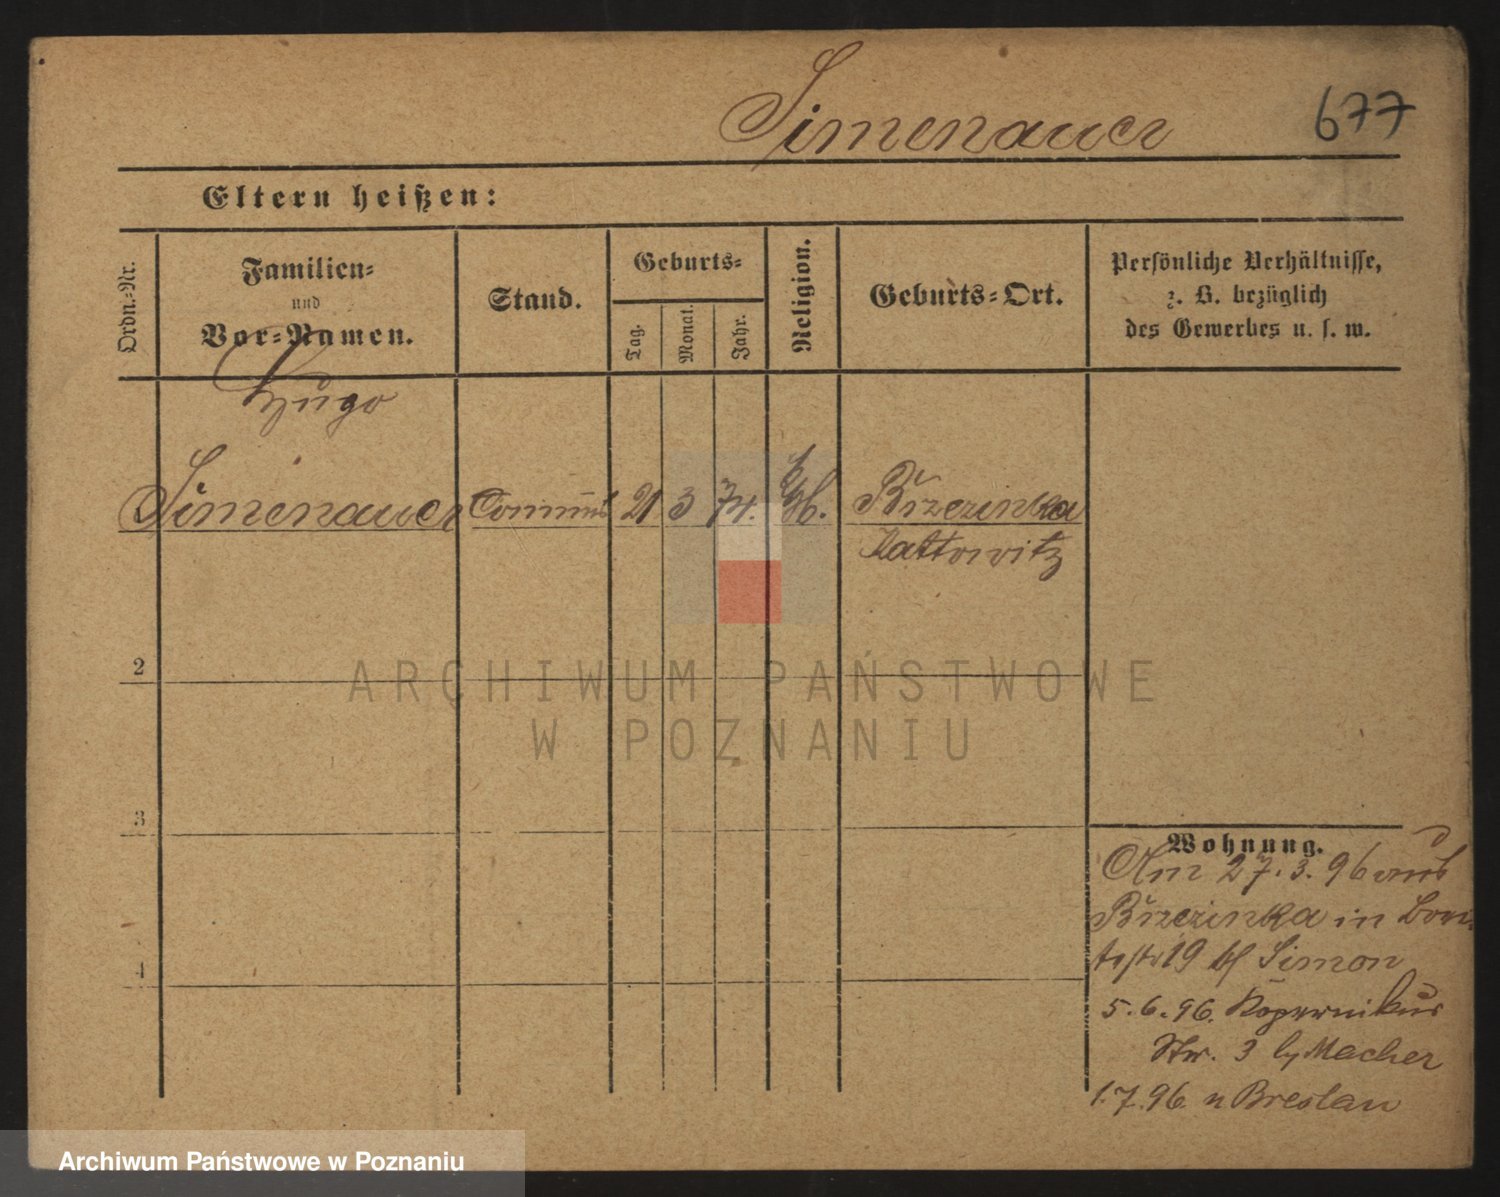 Simenauer
677
Eltern heißen:
Ordn.-Nr.
Familien-
und
Vor-Namen.
Stand.
Geburts-
Tag.
Monat.
Jahr.
Religion.
Geburts-Ort.
Persönliche Verhältnisse,
z. B. bezüglich
des Gewerbes u. s. w.
Hugo
Simenauer Commis 21 3 74. Brzezinka
Kattowitz
2
3
4
Wohnung.
Am 27.3.96 aus
Brzezinka in
19 Simon
5.6.96. Kopernikus
Str. 3 Macher
1.7.96. n Breslau
ARCHIWUM PAŃSTWOWE
W POZNANIU
Archiwum Państwowe w Poznaniu